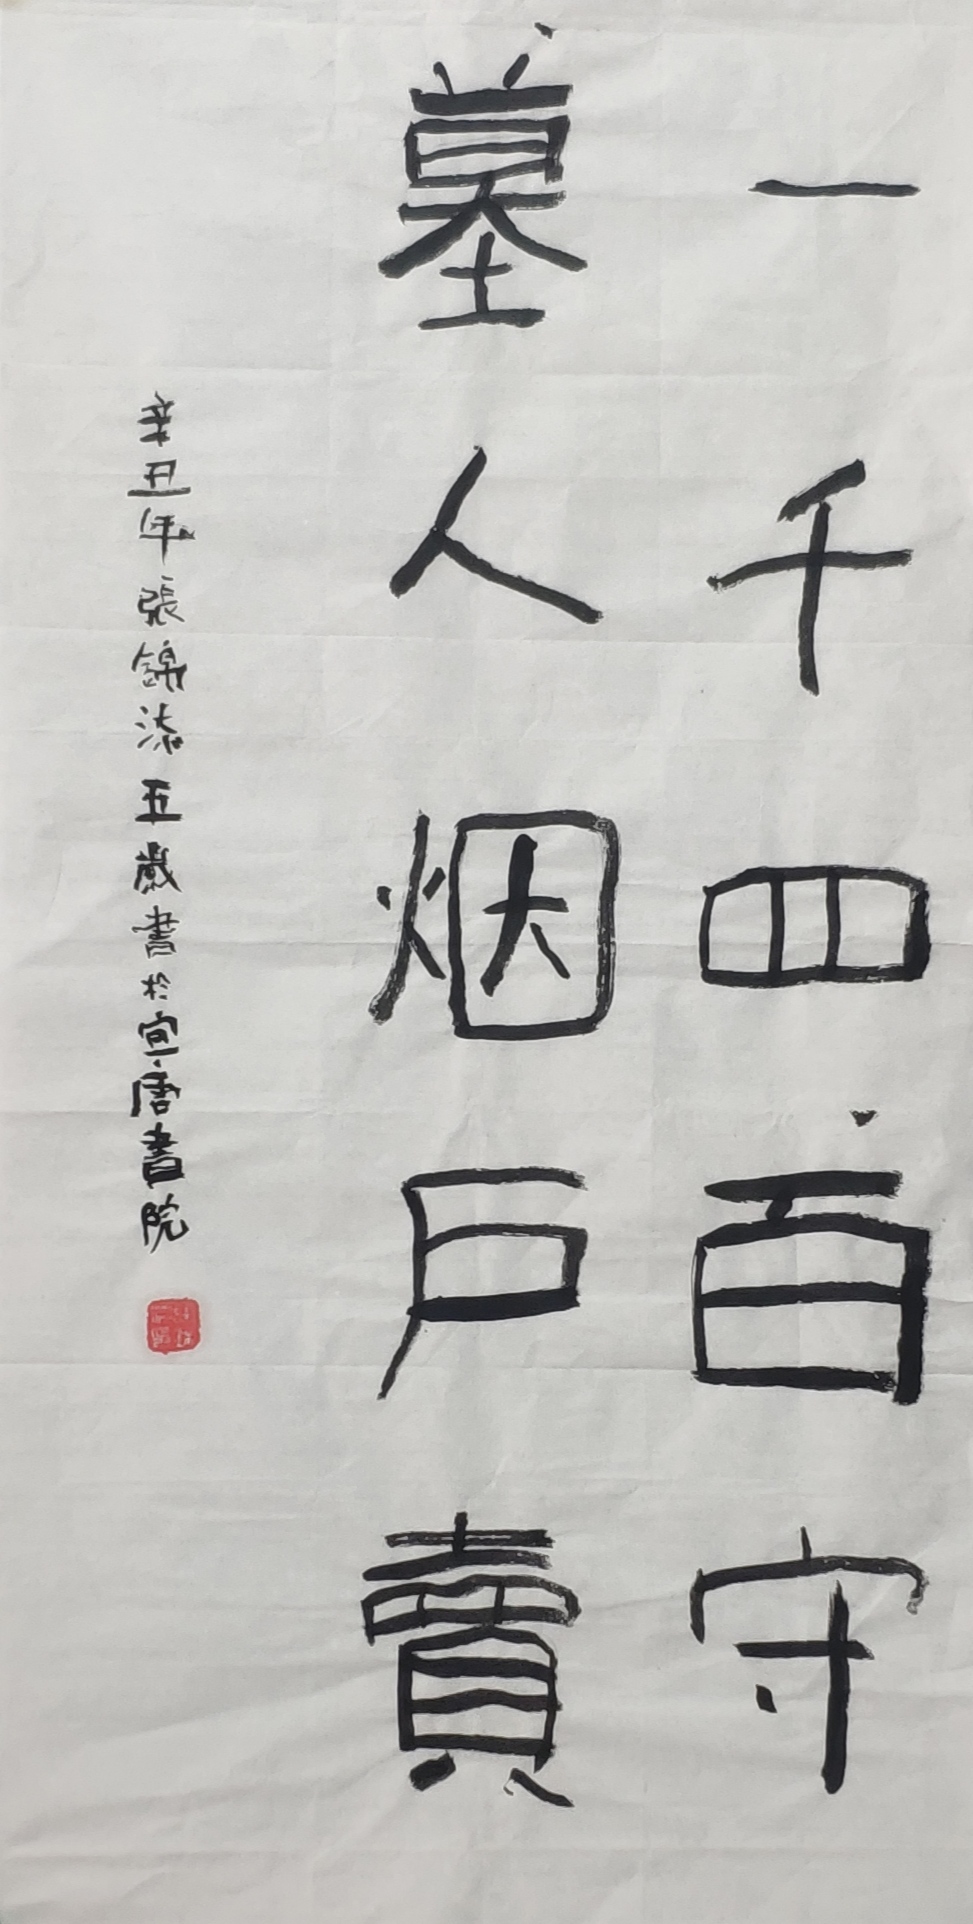 一千四百守
墓人烟户賣
辛丑年張錦添五歲書於宣唐書院